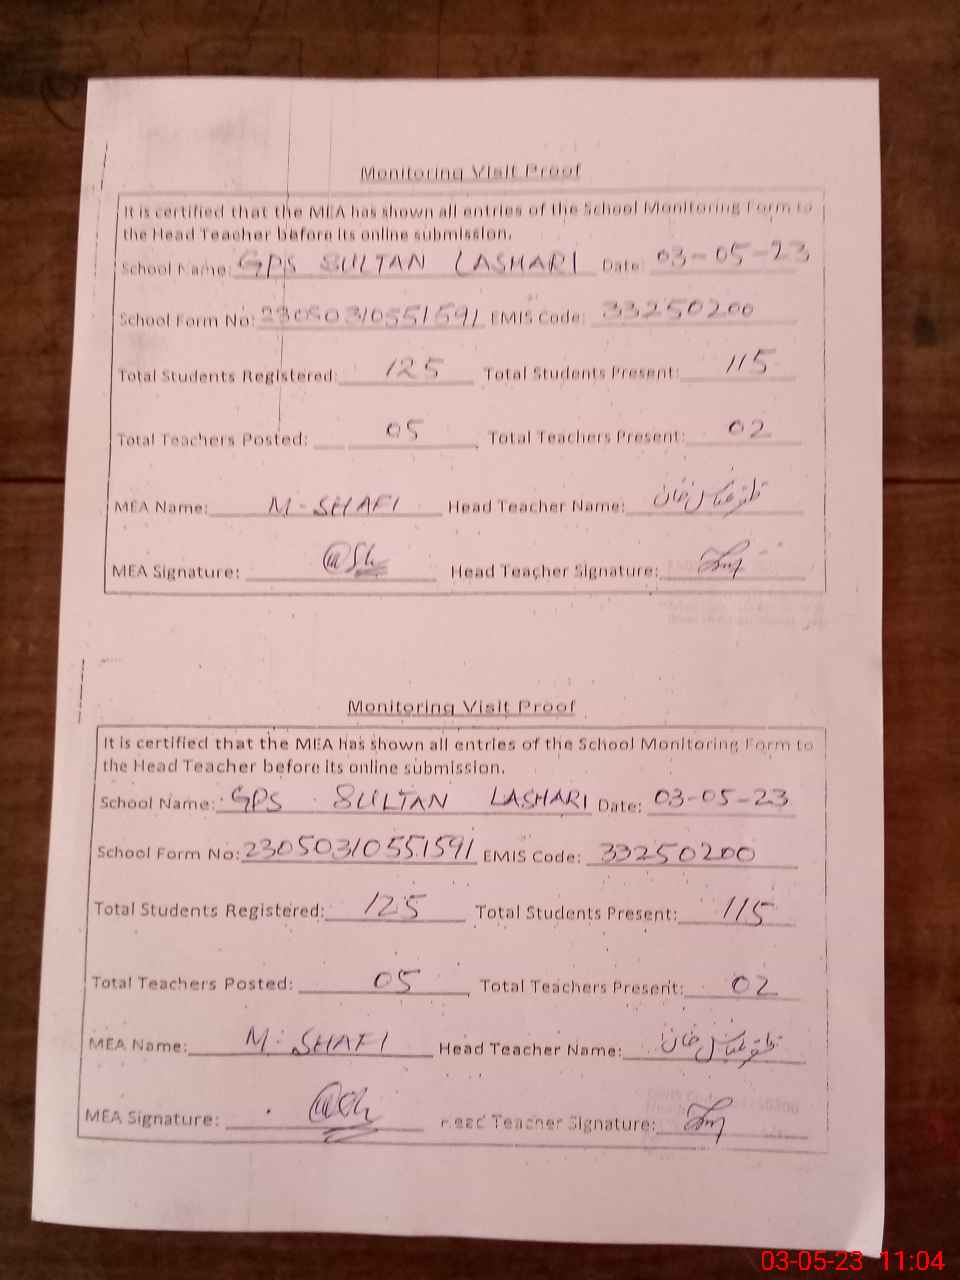 Monitoring Visit Proof
It is certified that the MEA has shown all entries of the School Monitoring Form to
the Head Teacher before its online submission.
School Name: GPS SULTAN LASHARI Date: 03-05-23
School Form No: 23050310551591 EMIS Code: 33250200
Total Students Registered: 125 Total Students Present: 115
Total Teachers Posted: 05 Total Teachers Present: 02
MEA Name: M-SHAFI Head Teacher Name: ظفر عباس خان
MEA Signature: Head Teacher Signature:
Monitoring Visit Proof
It is certified that the MEA has shown all entries of the School Monitoring Form to
the Head Teacher before its online submission.
School Name: GPS SULTAN LASHARI Date: 03-05-23
School Form No: 23050310551591 EMIS Code: 33250200
Total Students Registered: 125 Total Students Present: 115
Total Teachers Posted: 05 Total Teachers Present: 02
MEA Name: M. SHAFI Head Teacher Name: ظفر عباس خان
MEA Signature: Head Teacher Signature:
03-05-23 11:04